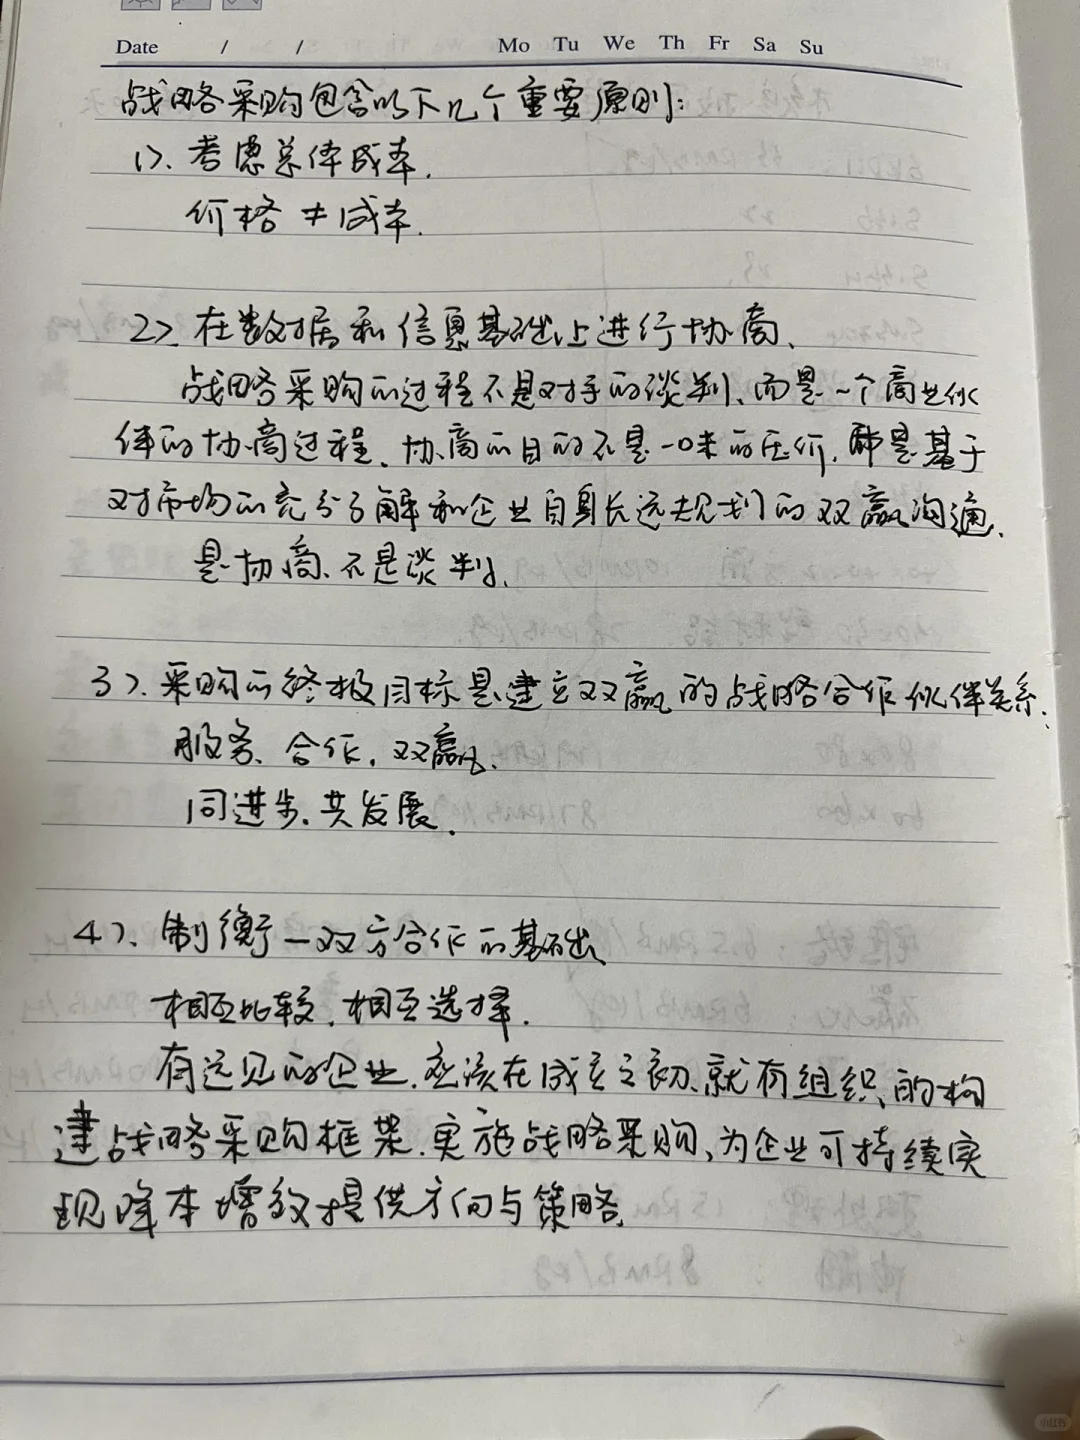 Date / / Mo Tu We Th Fr Sa Su
战略采购包含以下几个重要原则:
1>、考虑总体成本.
价格≠成本.
2>、在数据和信息基础上进行协商、
战略采购的过程不是对手的谈判、而是一个商业伙
伴的协商过程、协商的目的不是一味的压价,而是基于
对市场的充分了解和企业自身长远规划的双赢沟通.
是协商、不是谈判、
3>、采购的终极目标是建立双赢的战略合作伙伴关系.
服务、合作、双赢、
同进步、共发展.
4>、制衡—双方合作的基础、
相互比较、相互选择.
有远见的企业、应该在成立之初、就有组织的构
建战略采购框架、实施战略采购、为企业可持续实
现降本增效提供方向与策略.
小红书